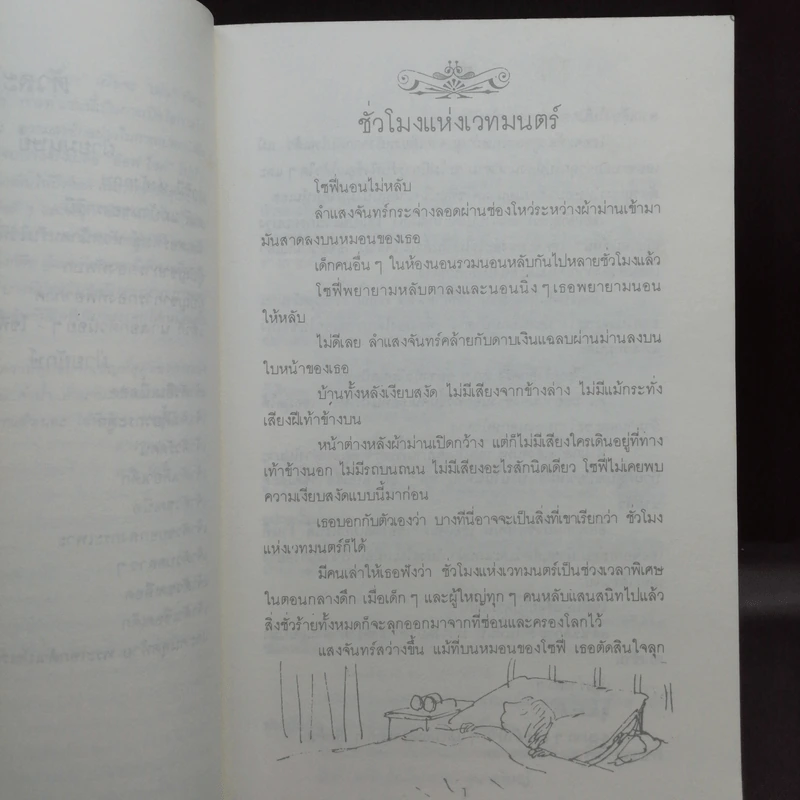 ชั่วโมงแห่งเวทมนตร์
โซฟีนอนไม่หลับ
ลำแสงจันทร์กระจ่างลอดผ่านช่องโหว่ระหว่างผ้าม่านเข้ามา
มันสาดลงบนหมอนของเธอ
เด็กคนอื่น ๆ ในห้องนอนรวมนอนหลับกันไปหลายชั่วโมงแล้ว
โซฟีพยายามหลับตาลงและนอนนิ่ง ๆ เธอพยายามนอน
ให้หลับ
ไม่ดีเลย ลำแสงจันทร์คล้ายกับดาบเงินแฉลบผ่านม่านลงบน
ใบหน้าของเธอ
บ้านทั้งหลังเงียบสงัด ไม่มีเสียงจากข้างล่าง ไม่มีแม้กระทั่ง
เสียงฝีเท้าข้างบน
หน้าต่างหลังผ้าม่านเปิดกว้าง แต่ก็ไม่มีเสียงใครเดินอยู่ที่ทาง
เท้าข้างนอก ไม่มีรถบนถนน ไม่มีเสียงอะไรสักนิดเดียว โซฟีไม่เคยพบ
ความเงียบสงัดแบบนี้มาก่อน
เธอบอกกับตัวเองว่า บางทีนี่อาจจะเป็นสิ่งที่เขาเรียกว่า ชั่วโมง
แห่งเวทมนตร์ก็ได้
มีคนเล่าให้เธอฟังว่า ชั่วโมงแห่งเวทมนตร์เป็นช่วงเวลาพิเศษ
ในตอนกลางดึก เมื่อเด็ก ๆ และผู้ใหญ่ทุก ๆ คนหลับแสนสนิทไปแล้ว
สิ่งชั่วร้ายทั้งหมดก็จะลุกออกมาจากที่ซ่อนและครองโลกไว้
แสงจันทร์สว่างขึ้น แม้ที่บนหมอนของโซฟี เธอตัดสินใจลุก